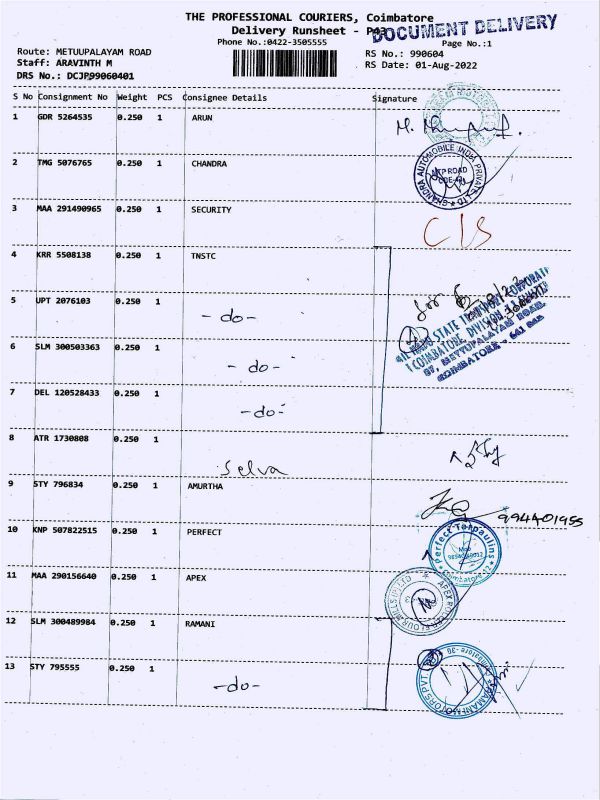 THE PROFESSIONAL COURIERS, Coimbatore
Delivery Runsheet - P43
DOCUMENT DELIVERY
Phone No.:0422-3505555
Page No.:1
Route: METUUPALAYAM ROAD
RS No.: 990604
Staff: ARAVINTH M
RS Date: 01-Aug-2022
DRS No.: DCJP99060401
S No Consignment No Weight PCS Consignee Details Signature
1 GDR 5264535 0.250 1 ARUN
2 TMG 5076765 0.250 1 CHANDRA
CHANDRA AUTOMOBILE INDIA PRIVATE LTD
MTP ROAD
3 MAA 291490965 0.250 1 SECURITY
4 KRR 5508138 0.250 1 TNSTC
5 UPT 2076103 0.250 1 -do-
STATE TRANSPORT CORPORATION
COIMBATORE DIVISION
37, METTUPALAYAM ROAD
COIMBATORE - 641
6 SLM 300503363 0.250 1 -do-
7 DEL 120528433 0.250 1 -do-
8 ATR 1730808 0.250 1 Selva
9 STY 796834 0.250 1 AMURTHA
994401955
10 KNP 507822515 0.250 1 PERFECT
Perfect Tarpaulins
Coimbatore-12
11 MAA 290156640 0.250 1 APEX
12 SLM 300489984 0.250 1 RAMANI
13 STY 795555 0.250 1 -do-
RAMANI MOTORS PVT
Coimbatore -30